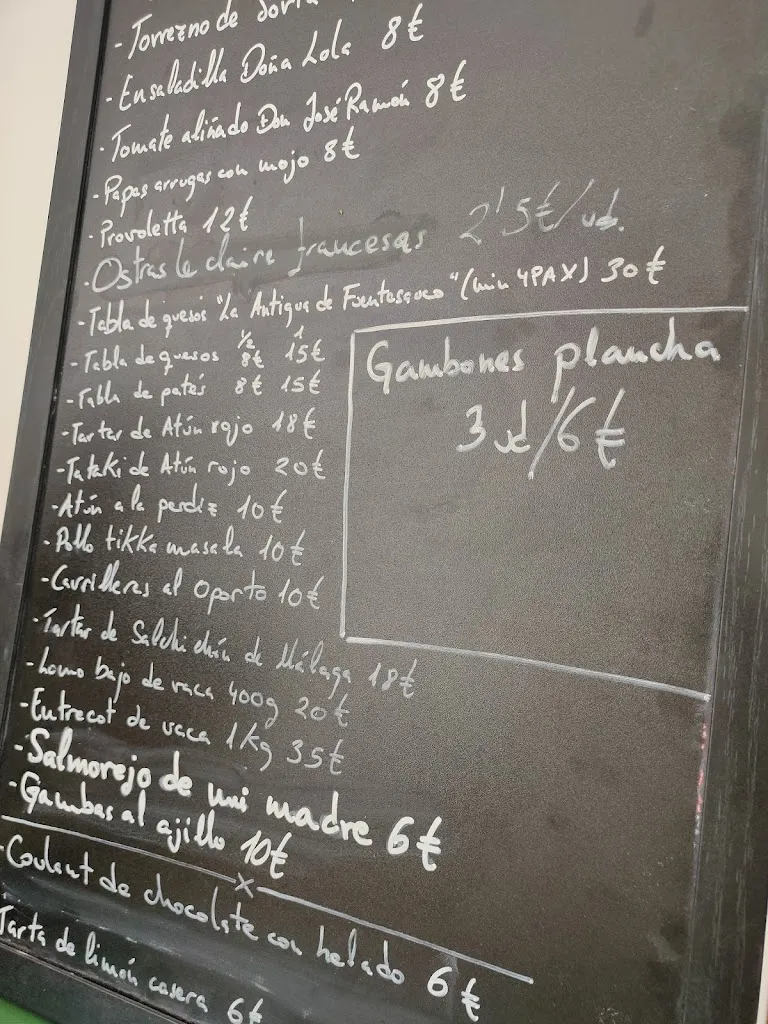 - Torrezno de Soria
- Ensaladilla Doña Lola 8€
- Tomate aliñado Don José Ramón 8€
- Papas arrugas con mojo 8€
- Provoletta 12€
- Ostras de claire francesas 2'5€/ud.
- Tabla de quesos "La Antigua de Fuentesauco" (min 4PAX) 30€
- Tabla de quesos 1/2 8€ 1 15€
- Tabla de patés 8€ 15€
- Tartar de Atún rojo 18€
- Tataki de Atún rojo 20€
- Atún a la perdiz 10€
- Pollo tikka masala 10€
- Carrilleras al Oporto 10€
- Tartar de Salchichón de Málaga 18€
- Lomo bajo de vaca 400g 20€
- Entrecot de vaca 1Kg 35€
- Salmorejo de mi madre 6€
- Gambas al ajillo 10€
- Coulant de chocolate con helado 6€
Tarta de limón casera 6€
Gambones plancha
3 ud/6€